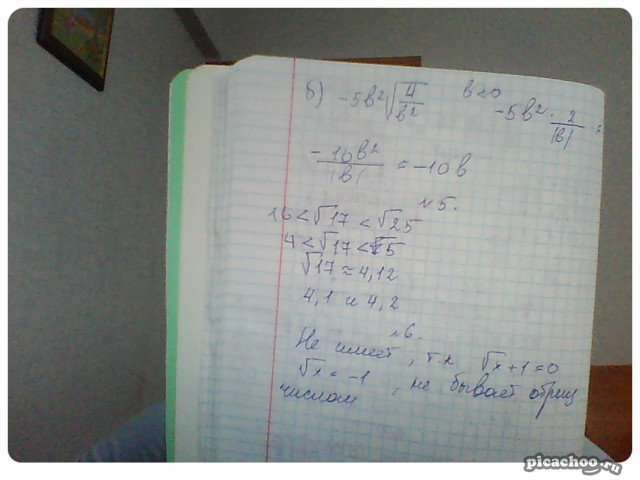 б) -5b²√(4/b²) b<0 -5b² · 2/|b| =
-10b²/|b| = -10b
N5.
16 < √17 < √25
4 < √17 < 5
√17 ≈ 4,12
4,1 и 4,2
N6.
Не имеет, т.к √x+1=0
√x = -1, не бывает отриц
числом
picachoo.ru